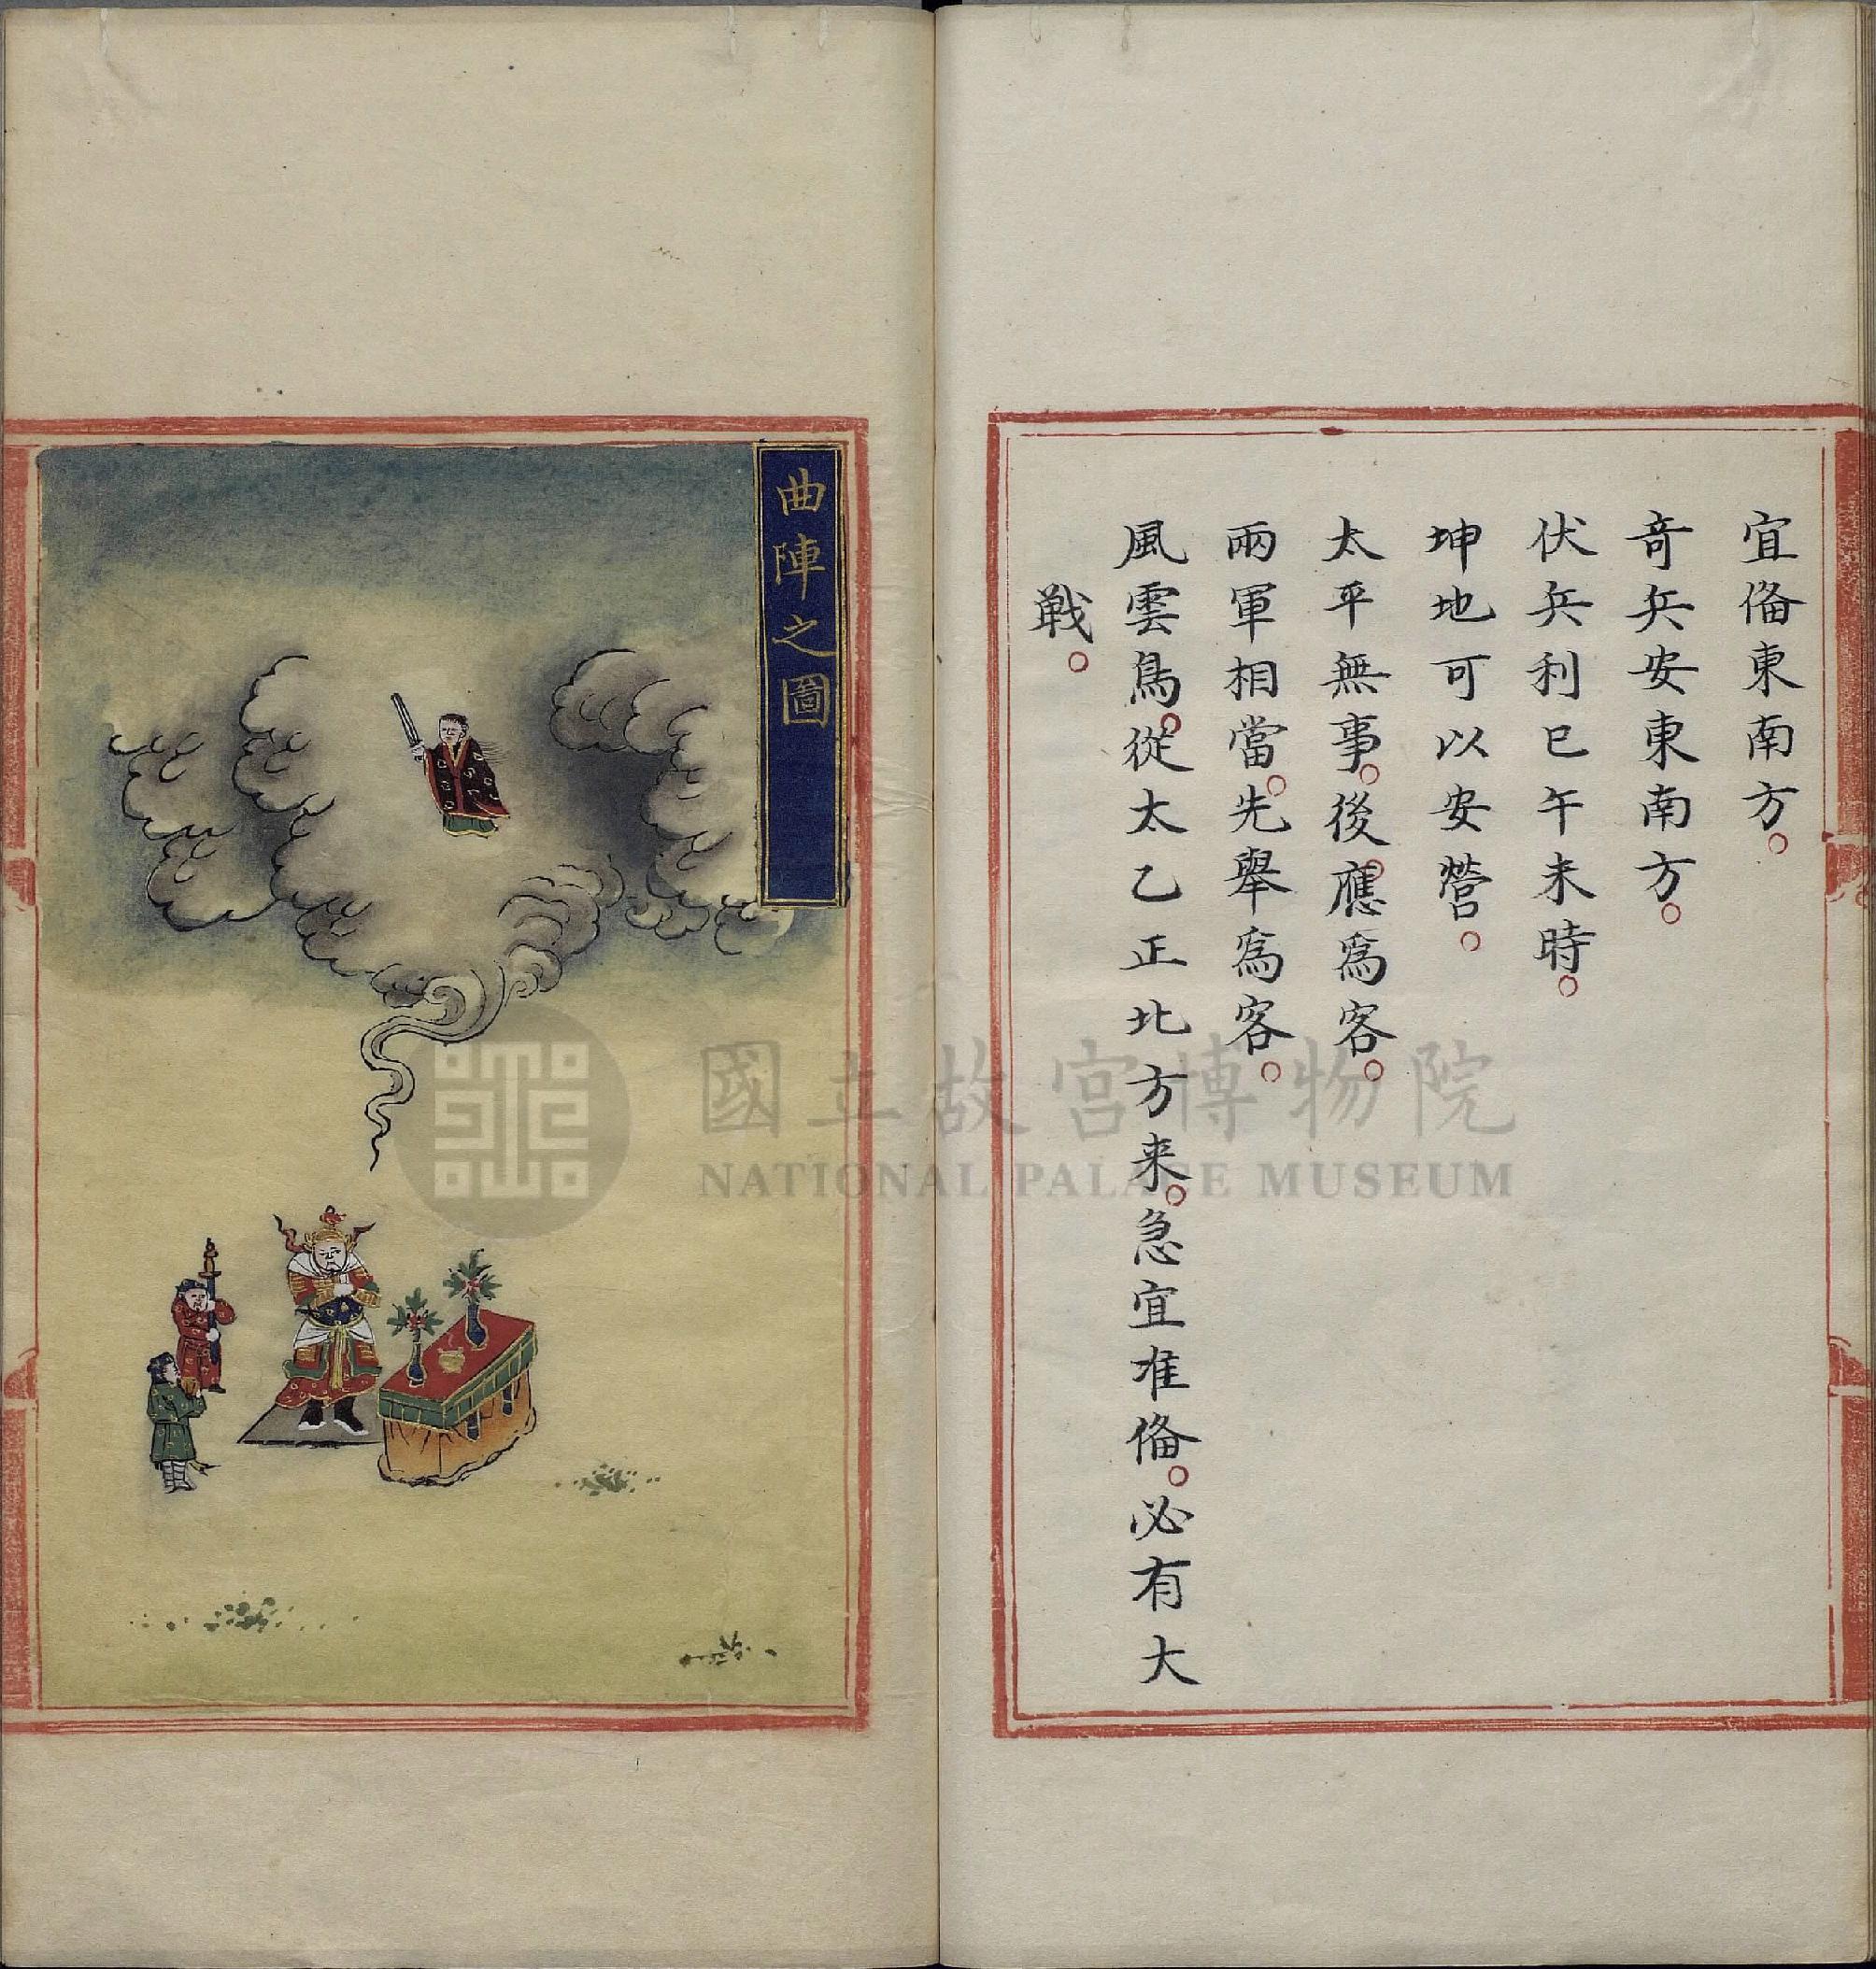 宜俻東南方。
竒兵安東南方。
伏兵利巳午未時。
坤地可以安營。
太平無事。後應為客。
兩軍相當。先舉為客。
風雲鳥。從太乙正北方来。急宜准俻。必有大
戰。
曲陣之圖
國立故宮博物院
NATIONAL PALACE MUSEUM